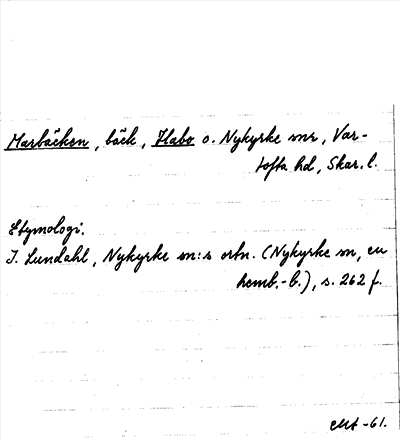 Marbäcken, bäck, Habo o. Nykyrke snr, Var-
tofta hd, Skar. l.
Etymologi.
I. Lundahl, Nykyrke sn:s ortn. (Nykyrke sn, en
hemb.-b.), s. 262 f.
-61.